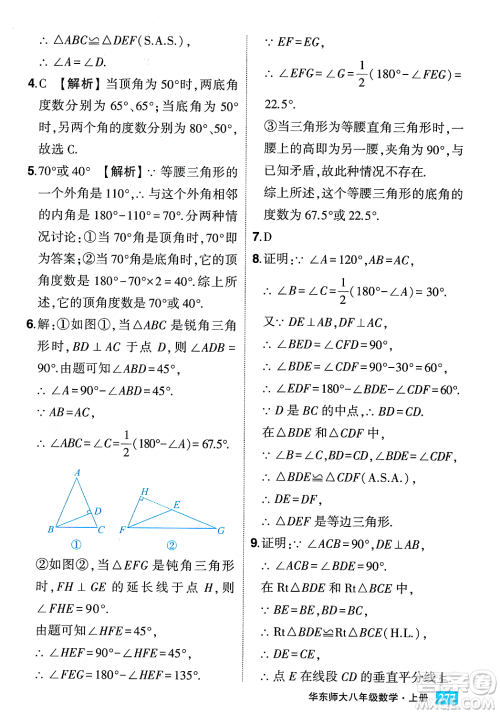 ∴ △ABC≌△DEF(S.A.S.),
∴ ∠A=∠D.
4.C 【解析】当顶角为50°时,两底角
度数分别为65°、65°;当底角为50°
时,另外两角的度数分别为50°、80°.
故选C
5.70°或40° 【解析】∵ 等腰三角形的
一个外角是110°,∴ 与这个外角相邻
的内角是180°-110°=70°.分两种情
况讨论:①当70°角为顶角时,70°即
为答案;②当70°角是底角时,它的顶
角度数是180°-70°×2=40°.综上所
述,它的顶角的度数是70°或40°
6.解:①如图①,当△ABC是锐角三角
形时,BD⊥AC于点D,则∠ADB=
90°.由题可知∠ABD=45°,
∴ ∠A=90°-∠ABD=45°.
∵ AB=AC,
∴ ∠ABC=∠C=1/2(180°-∠A)=67.5°.
A
D
B
C
①
H
E
F
G
②
②如图②,当△EFG是钝角三角形
时,FH⊥GE的延长线于点H,则
∠FHE=90°.
由题意可知∠HFE=45°,
∴ ∠HEF=90°-∠HFE=45°,
∴ ∠FEG=180°-∠HEF=135°.
∵ EF=EG,
∴ ∠EFG=∠G=1/2(180°-∠FEG)=
22.5°.
③当三角形为等腰直角三角形时,一
腰上的高即为另一腰,夹角为90°,与
已知矛盾,故此种情况不存在.
综上所述,这个等腰三角形的底角的
度数为67.5°或22.5°
7.D
8.证明:∵ ∠A=120°,AB=AC,
∴ ∠B=∠C=1/2(180°-∠A)=30°.
又∵ DE⊥AB,DF⊥AC,
∴ ∠BED=∠CFD=90°,
∴ ∠BDE=∠CDF=90°-30°=60°,
∴ ∠EDF=180°-∠BDE-∠CDF=60°.
∵ D是BC的中点,∴ BD=CD.
在△BDE和△CDF中,
∵ ∠B=∠C,BD=CD,∠BDE=∠CDF,
∴ △BDE≌△CDF(A.S.A.),
∴ DE=DF,
∴ △DEF是等边三角形.
9.证明:∵ ∠ACB=90°,DE⊥AB,
∴ ∠ACB=∠BDE=90°.
在Rt△BDE和Rt△BCE中,
∵ BE=BE,BD=BC,
∴ Rt△BDE≌Rt△BCE(H.L.),
∴ DE=CE,
∴ 点E在线段CD的垂直平分线上.
华东师大八年级数学·上册
277